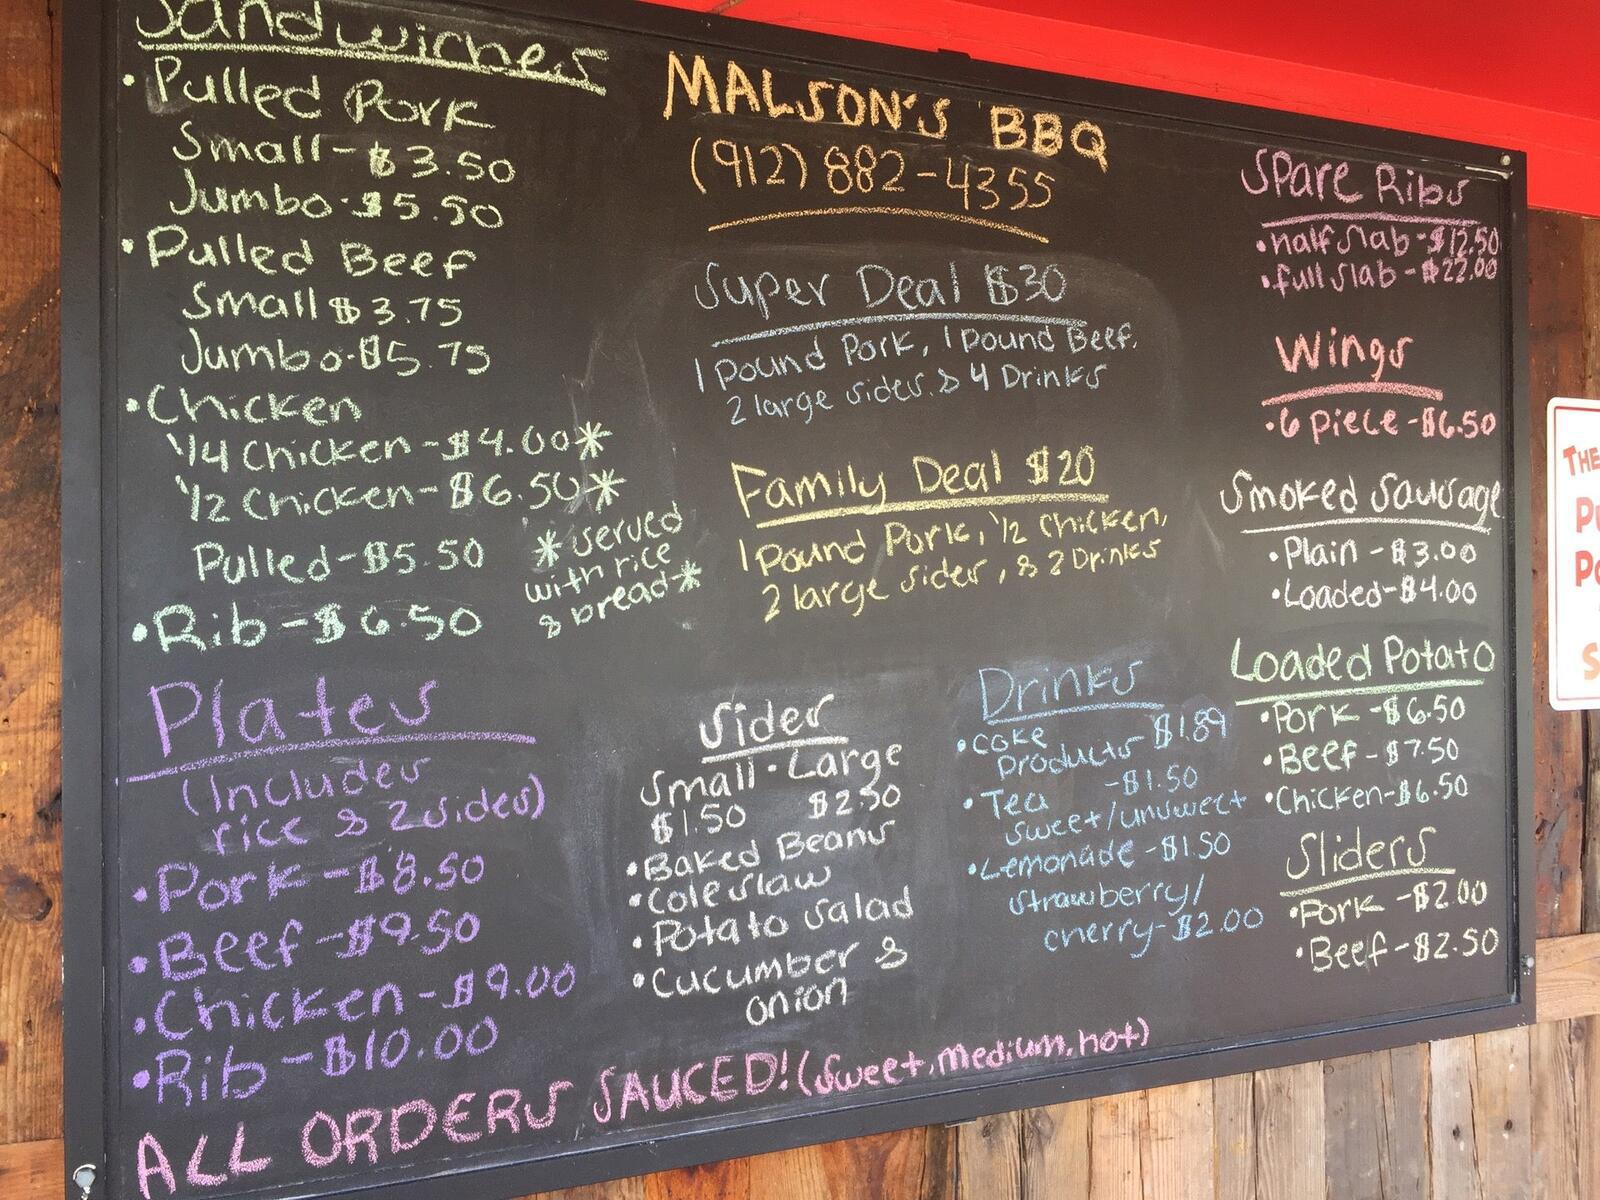 Sandwiches
• Pulled Pork
Small - $3.50
Jumbo - $5.50
• Pulled Beef
Small $3.75
Jumbo - $5.75
• Chicken
1/4 Chicken - $4.00*
1/2 Chicken - $6.50*
Pulled - $5.50
* served
with rice
& bread *
• Rib - $6.50
Plates
(Includes
rice & 2 sides)
• Pork - $8.50
• Beef - $9.50
• Chicken - $9.00
• Rib - $10.00
MALSON'S BBQ
(912) 882-4355
Super Deal $30
1 Pound Pork, 1 Pound Beef,
2 large sides, & 4 Drinks
Family Deal $20
1 Pound Pork, 1/2 Chicken,
2 large sides, & 2 Drinks
Sides
Small • Large
$1.50 $2.50
• Baked Beans
• Coleslaw
• Potato salad
• Cucumber &
onion
Drinks
• Coke
Products $1.89
• Tea - $1.50
sweet/unsweet
• Lemonade - $1.50
strawberry/
cherry - $2.00
Spare Ribs
• half slab - $12.50
• full slab - $22.00
Wings
• 6 Piece - $6.50
Smoked Sausage
• Plain - $3.00
• Loaded - $4.00
Loaded Potato
• Pork - $6.50
• Beef - $7.50
• Chicken - $6.50
Sliders
• Pork - $2.00
• Beef - $2.50
ALL ORDERS SAUCED! (sweet, medium, hot)
THE